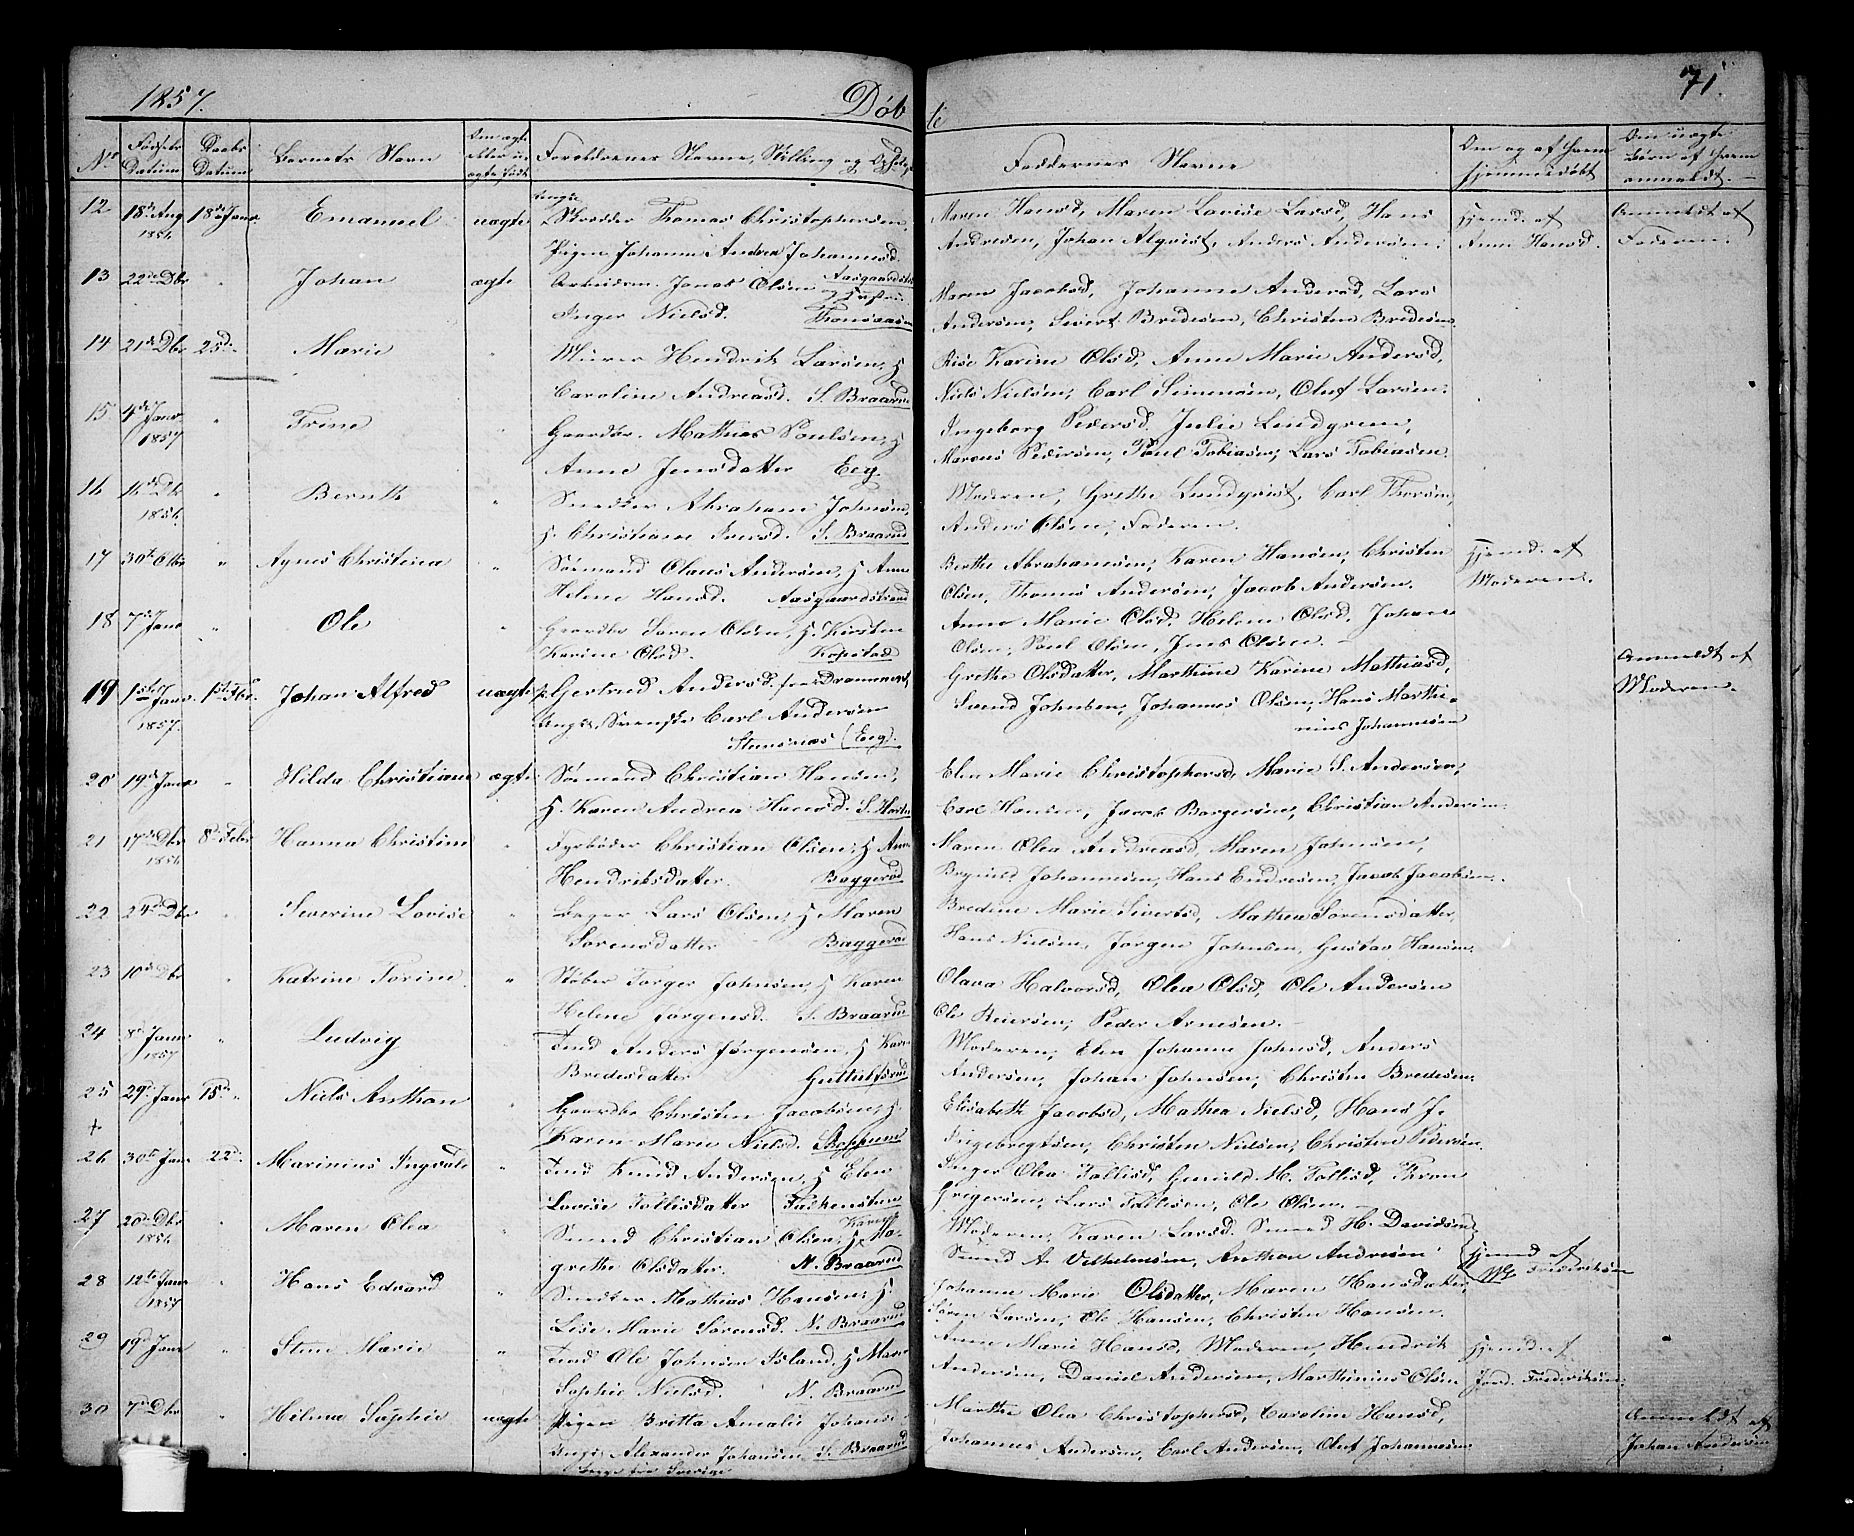 1857.
Døbte
71.
No
Fødsels Datum
Daabs Datum
Barnets Navn
Om ægte eller uægte født
Forældrenes Navne, Stilling og
Faddernes Navne
Om og af hvem hjemmedøbt
Om uægte Børn af hvem anmeldt.
12 18de Aug 1856 18de Janr Emanuel uægte Ungk. Skrædder Thomas Christophersen, Maren Hansd, Maren Lovise Larsd, Hans Hjemd. af Anmeldt af
Pigen Johanne Andrea Johannesd. Andresen, Johan Alqvist, Anders Andersen. Anne Hansd. Faderen.
13 22de Dbr " Johan ægte Arbeidsm. Jonas Olsen Aasgaardstr. og Hustru Maren Jacobsd, Johanne Andersd, Lars
Inger Nielsd. Andersen, Sivert Bredesen, Christen Bredesen.
14 21de Dbr 25de Marie " Murer Hendrik Larsen, H Rise Karine Olsd, Anne Marie Andersd,
Caroline Andreasd. S. Braarud Niels Nielsen, Carl Simensen, Oluf Larsen.
15 4de Janr 1857 " Trine Gaardbr. Mathias Poulsen, H Ingeborg Pedersd. Julie Lindgren,
Anne Jensdatter Eeg. Marcus Pedersen, Poul Tobiasen, Lars Tobiasen.
16 Dbr 1856 " Bernth " Snedker Abraham Johnsen, Moderen, Grethe Lundqvist, Carl Thorsen,
H. Christiane Iversd. S. Braarud Anders Olsen, Faderen.
17 30te Otbr " Agnes Christina " Sømand Olaus Andersen, H Anne Berthe Abrahamsen, Karen Hansen, Christen Hjemd. af
Helene Hansd. Aasgaardstrand Olsen, Thomas Andersen, Jacob Andersen. Moderen.
18 7de Janr " Ole " Gaardbr Søren Olsen, H. Kirsten Anne Marie Olsd, Helene Olsd, Johan
Karine Olsd. Kopstad Olsen, Poul Olsen, Jens Olsen.
19 1ste Janr 1857. 1ste Fbr. Johan Alfred uægte p. Gertrud Andersd. fra Drammen, Grethe Olsdatter, Marthine Karine Mathiasd, Anmeldt af
Ungk. Svenske Carl Andersen Svend Johnsen, Johannes Olsen, Hans Marthi- Moderen.
Stensnæs (Eeg). nius Johannesen
20 19de Janr " Hilda Christiane ægte Sømand Christian Hansen, Elen Marie Christophersd, Marie S. Andersen,
H. Karen Andrea Hansd. S. Carl Hansen, Jacob Borgersen, Christian Andersen.
21 17de Dbr 1856 8de Febr Hanna Christine " Fyrbøder Christian Olsen, H Anne Maren Olea Andreasd, Maren Johnsen,
Hendriksdatter. Baggerød Johannesen, Hans Endresen, Jacob Jacobsen.
22 24de Dbr " Severine Lovise " Bager Lars Olsen, H Maren Bredine Marie Sivertsd, Mathea Sørensdatter,
Sørensdatter Baggerød Hans Nielsen, Jørgen Johnsen, Gustav Hansen.
23 10de Dbr " Katrine Torine " Støber Torger Johnsen, H Karen Olava Halvorsd, Olea Olsd, Ole Andersen
Helene Jørgensd. S. Braarud Ole Reiersen, Peder Arnesen.
24 8de Janr 1857 " Ludvig Ind Anders Jørgensen, H Karen Moderen, Elen Johanne Johnsd, Anders
Bredesdatter Andersen, Johan Johnsen, Christen Bredesen.
25 29de Janr 15de " Niels Anthon " Gaardbr Christen Jacobsen, H. Elisabeth Jacobsd, Mathea Nielsd, Hans J.
+ Karen Marie Nielsd. Ingebregtsen, Christen Nielsen, Christen Pedersen.
26 30te Janr 22de Marinius Ingvald " Ind Knud Andersen, H Elen Inger Olea Tollefsd, Gunild M. Tollefsd, Thron
Lovise Tollefsdatter Falkensten Gregersen, Lars Tollefsen, Ole Olsen.
27 20de Dbr 1856 " Maren Olea " Smed Christian Olsen, H Karen Ma- Moderen, Karen Larsd. Smed H. Davidsen
grethe Olsdatter. N. Braarud Smed A. Vilhelmsen, Anthon Andresen Hjemd af Frederiksen
28 12te Janr 1857 " Hans Edvard " Snedker Mathias Hansen, H. Johanne Marie Olsdatter, Maren Hansdatter,
Lise Marie Sørensd. N. Braarud Søren Larsen, Ole Hansen, Christen Hansen.
29 19de Janr " Stine Marie " Ind Ole Johnsen Island, H Maren Anne Marie Hansd, Moderen, Hendrik Hjemd. af
Sophie Nielsd. N. Braarud Andersen, Daniel Andersen, Marthinius Olsen Jord. Frederiksen.
30 7de Dbr " Hilma Sophie uægte Pigen Britta Amalie Johans- Marthe Olea Christophersd, Caroline Hansd, Anmeldt af
Ungk. Alexander Johansen S. Braarud Johannes Andersen, Carl Andersen, Oluf Johannesen Johan Andersen
begge fra Sverige